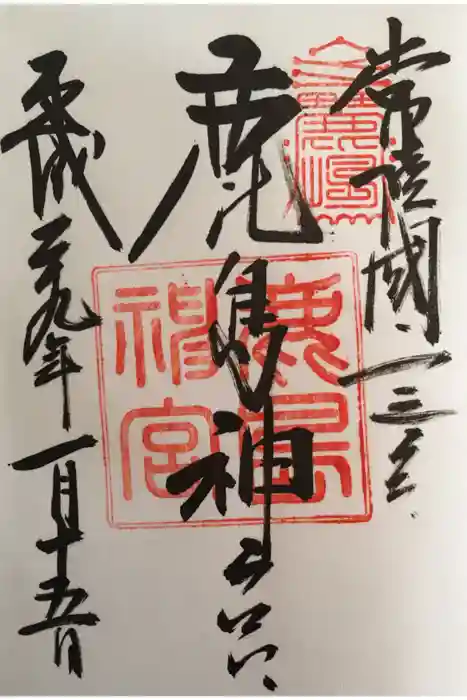 常陸國一之宮
鹿島神宮
平成二十九年一月十五日
鹿島
神宮